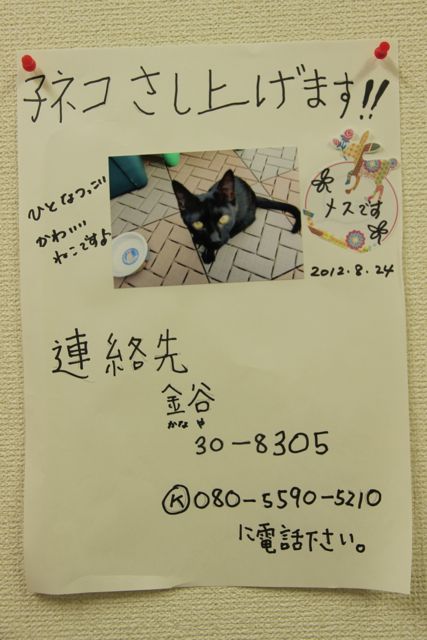 子ネコ さし上げます!!
ひとなつっこい
かわいい
ねこですよ
メスです
2012.8.24
連絡先
金谷
かなや
30-8305
Ⓚ080-5590-5210
に電話下さい。